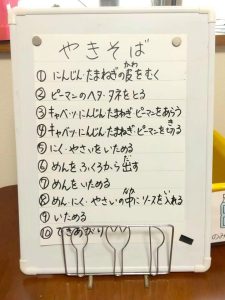 やきそば
① にんじん・たまねぎの皮をむく
② ピーマンのヘタ・タネをとる
③ キャベツ・にんじん・たまねぎ・ピーマンをあらう
④ キャベツ・にんじん・たまねぎ・ピーマンを切る
⑤ にく・やさいをいためる
⑥ めんをふくろから出す
⑦ めんをいためる
⑧ めん・にく・やさいの中にソースを入れる
⑨ いためる
⑩ できあがり